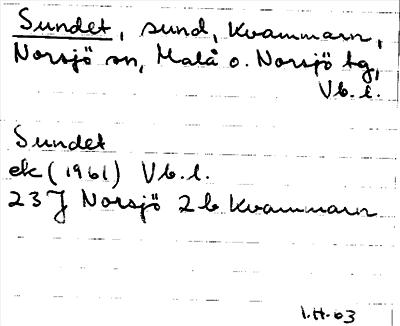 Sundet, sund, Kvammarn,
Norsjö sn, Malå o. Norsjö tg,
Vb. l.
Sundet
ek (1961) Vb. l.
23 J Norsjö 2 b Kvammarn
I.H-63